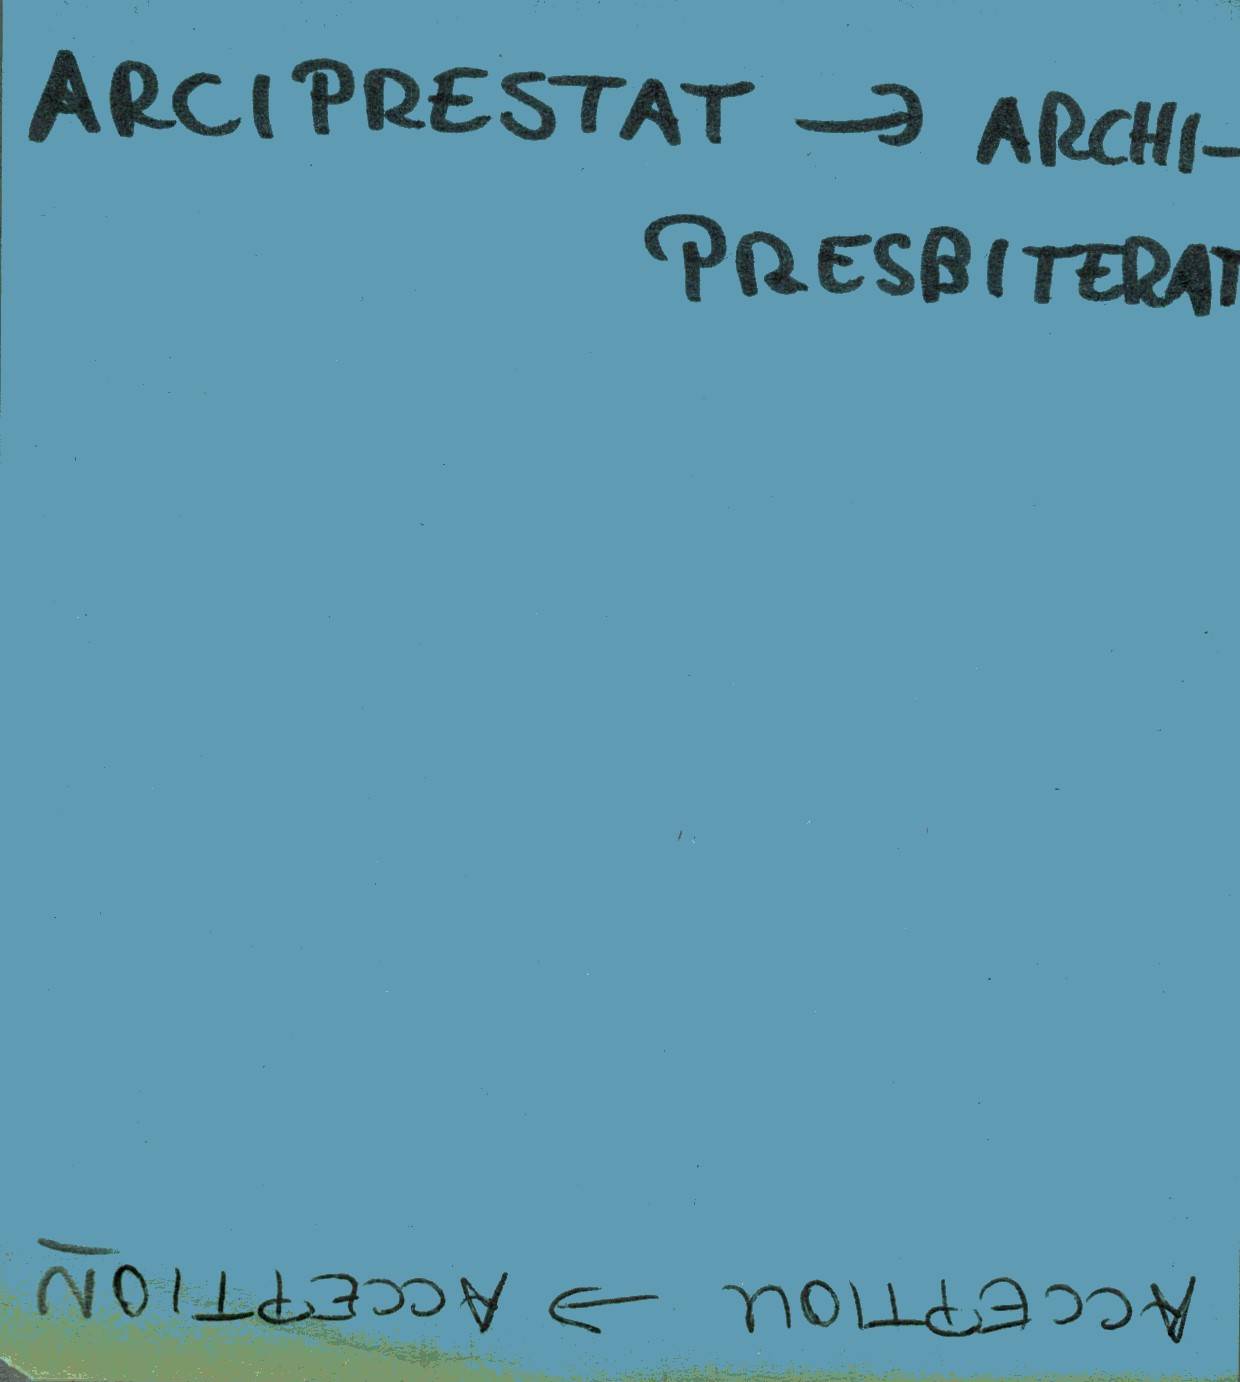 ARCIPRESTAT → ARCHI-
PRESBITERAT
ACCEPTION → ACCEPTION